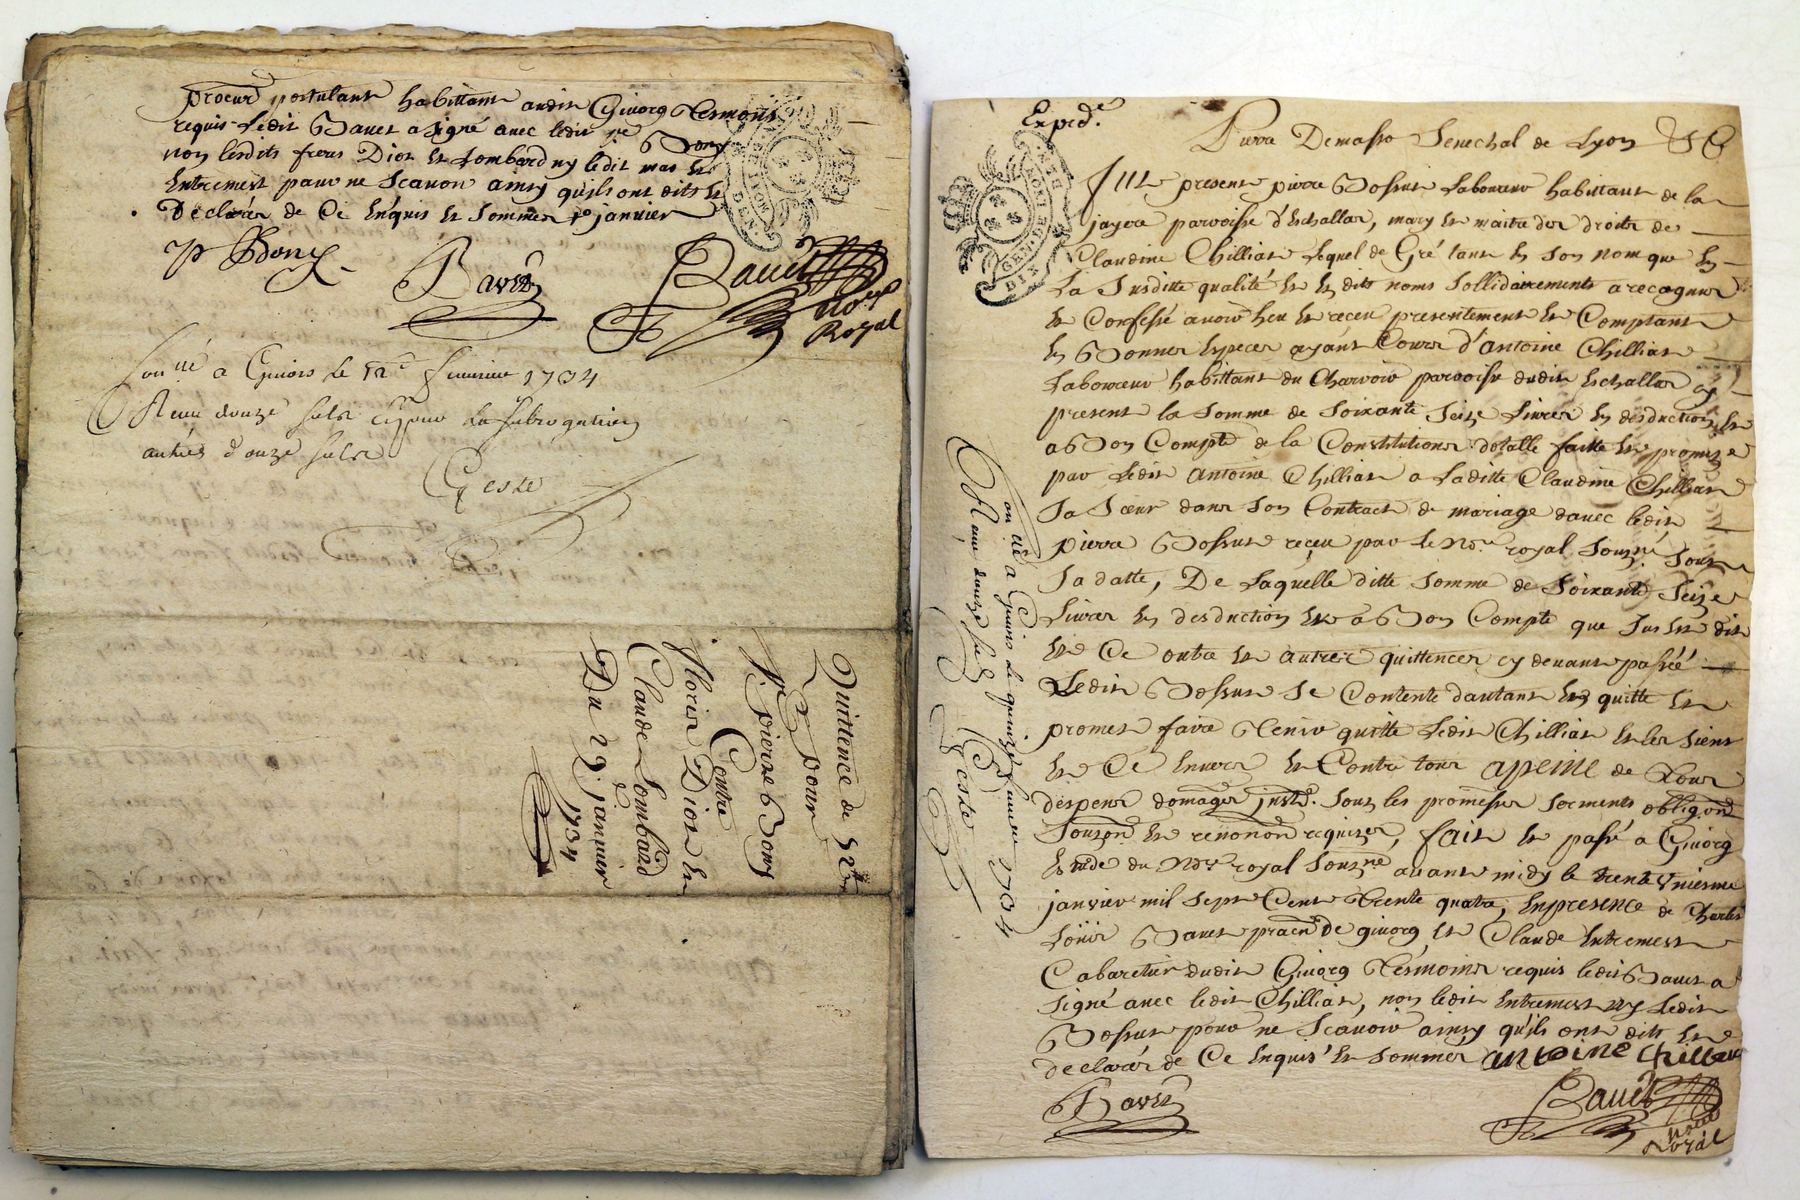 procur postulant habittant audit Givorg tesmoins
requis ledit Bavet a signé avec ledit sr Bory
non lesdits freres Diot et Lombard ny ledit mas et
Entremest pour ne scavoir ainsy qu'ils ont dits et
Declarér de Ce Enquis et sommér janvier
Bory
Bavet
Bavet
nore
Royal
a Givors le fevrier 1734
Receu douze sols cy pour la subrogation
autres douze sols
Geste
Quittence de
pour
Sr pierre Bory
Contre
floris Diot et
Claude Lombard
Du 29 janvier
1734
Exped.é
GEN DE LYON
DIX DEN
Pierre Demasso Senechal de Lyon
Fut present pierre Bossut Laboureur habittant de la
jayere parroisse d'Echallas, mary et maitre des droits de
Claudine Chilliat Lequel de Gré tant En son nom que En
La Susditte qualité et Es dits noms sollidairements a recognus
et Confessé avoir heu et receu presentement et Comptant
En Bonnes Especes ayant Cours d'antoine Chilliat
Laboureur habittant du Charvoir parroisse dudit Echallas cy
present la somme de soixante seize Livres En desduction et
a Bon Compte de la Constitution dotalle faitte et promise
par Ledit antoine Chilliat a Laditte Claudine Chilliat
sa sœur dans son Contract de mariage davec ledit
pierre Bossut reçeu par le nore royal souzné souz
sa datte, De Laquelle ditte somme de soixante seize
Livres En desduction et a Bon Compte que sus est dit
et Ce outre et autres quittences cy devant passée
Ledit Bossut se Contente dautant En quitte et
promet faire tenir quitte Ledit Chilliat et les siens
et Ce Envers et Contre tous apeine de tous
despens domages jnsts. souz les promesses serments obligaon
souzon et renonon requises, fait et passé a Givorg
Estude du nore royal souzné avant midy le trente Uniesme
janvier mil sept Cent trente quatre, En presence de Charles
Loüis Bavet praen de givorg et Claude Entremest
Cabaretier dudit Givorg tesmoins requis ledit Bavet a
signé avec ledit Chilliat, non ledit Entremest ny Ledit
Bossut pour ne scavoir ainsy qu'ils ont dits et
declarér de Ce Enquis et sommér antoine chilliat
Bavet
Bavet
nore
Royal
a Givors le quinze fevrier 1734
Receu douze sols Geste